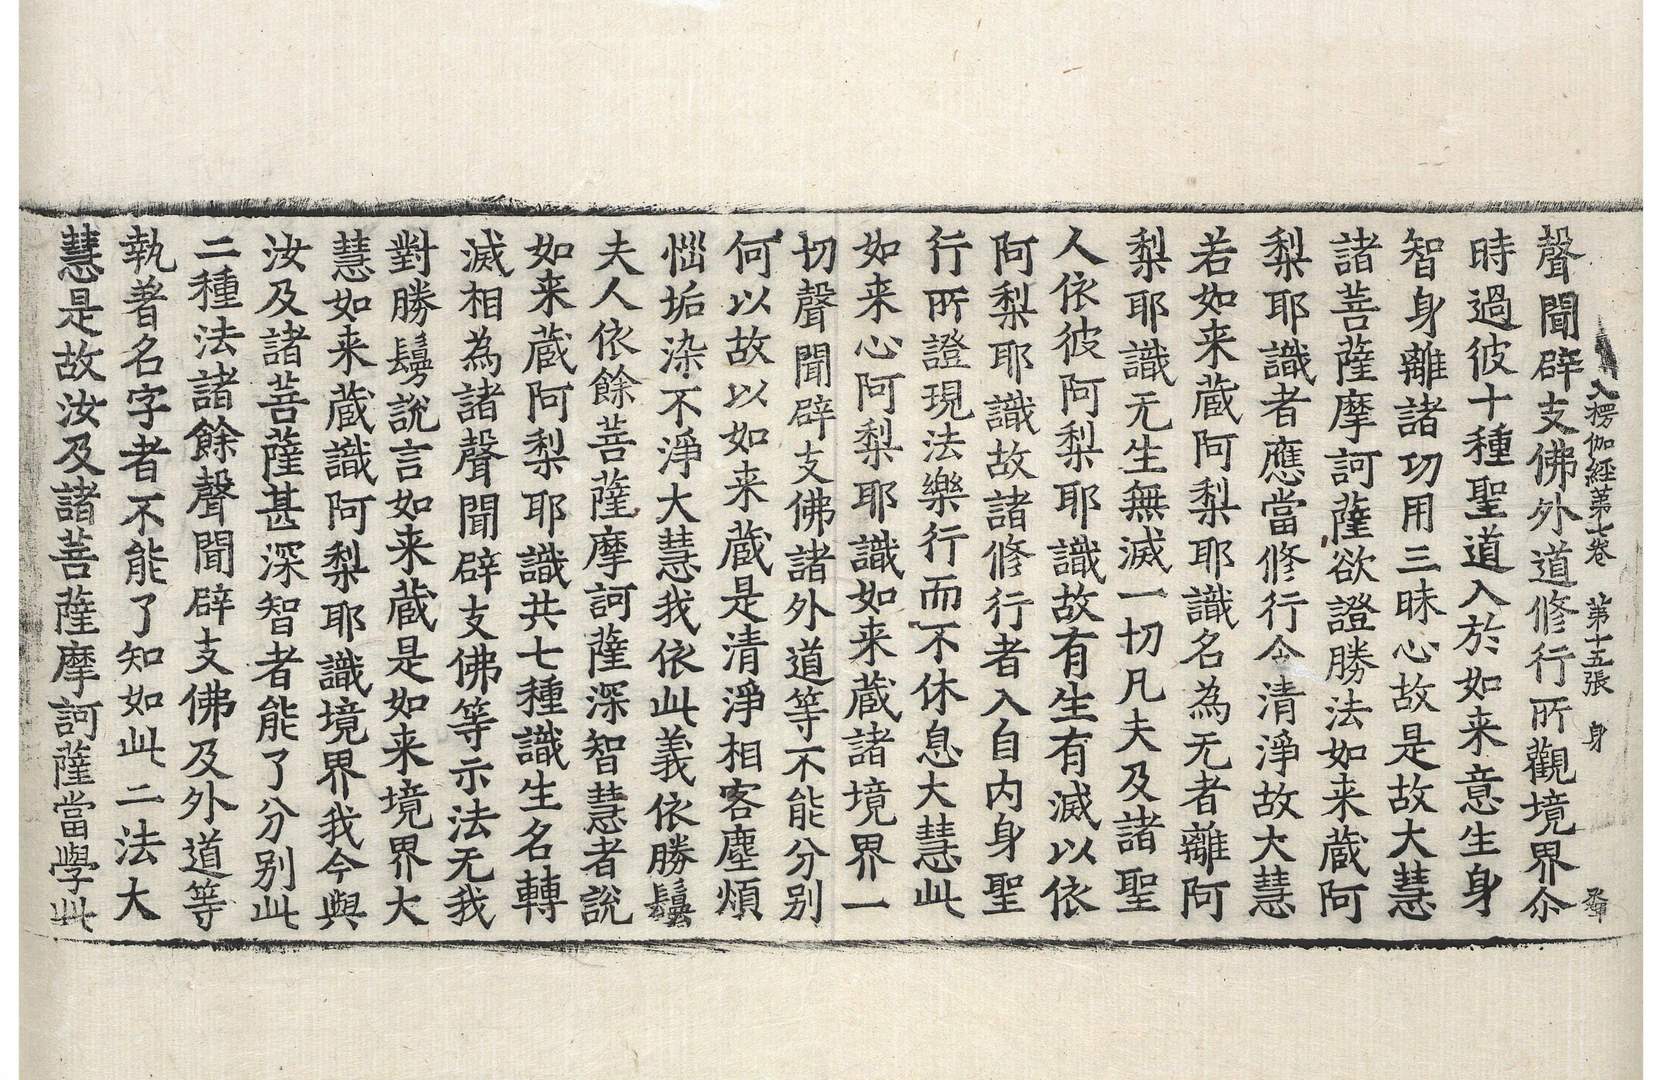 入楞伽經第七卷 第十五張 身
聲聞辟支佛外道修行所觀境界尒
時過彼十種聖道入於如来意生身
智身離諸功用三昧心故是故大慧
諸菩薩摩訶薩欲證勝法如来蔵阿
梨耶識者應當修行令清淨故大慧
若如来蔵阿梨耶識名為无者離阿
梨耶識无生無滅一切凡夫及諸聖
人依彼阿梨耶識故有生有滅以依
阿梨耶識故諸修行者入自内身聖
行所證現法樂行而不休息大慧此
如来心阿梨耶識如来蔵諸境界一
切聲聞辟支佛諸外道等不能分别
何以故以如来蔵是清淨相客塵煩
惱垢染不淨大慧我依此義依勝鬘
夫人依餘菩薩摩訶薩深智慧者說
如来蔵阿梨耶識共七種識生名轉
滅相為諸聲聞辟支佛等示法无我
對勝鬘說言如来蔵是如来境界大
慧如来蔵識阿梨耶識境界我今與
汝及諸菩薩甚深智者能了分别此
二種法諸餘聲聞辟支佛及外道等
執著名字者不能了知如此二法大
慧是故汝及諸菩薩摩訶薩當學此